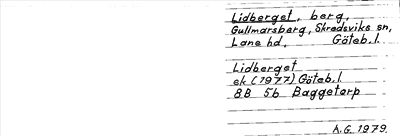 Lidberget, berg,
Gullmarsberg, Skredsviks sn,
Lane hd, Göteb.l.
Lidberget
ek (1977) Göteb.l.
8B 5b Baggetorp
A.G. 1979.